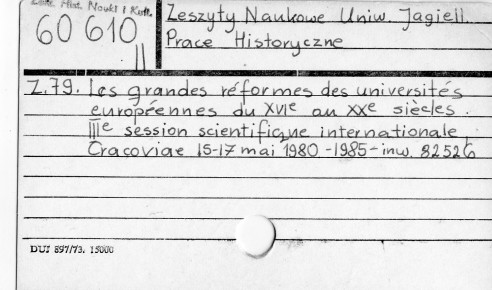 Hist. Nauki i Kult.
60 610
II
Zeszyty Naukowe Uniw. Jagiell.
Prace Historyczne
Z.79. Les grandes réformes des universités
européennes du XVIe au XXe siècles.
IIIe session scientifique internationale,
Cracoviae 15-17 mai 1980 -1985- inw. 82526
DUJ 897/73. 15000